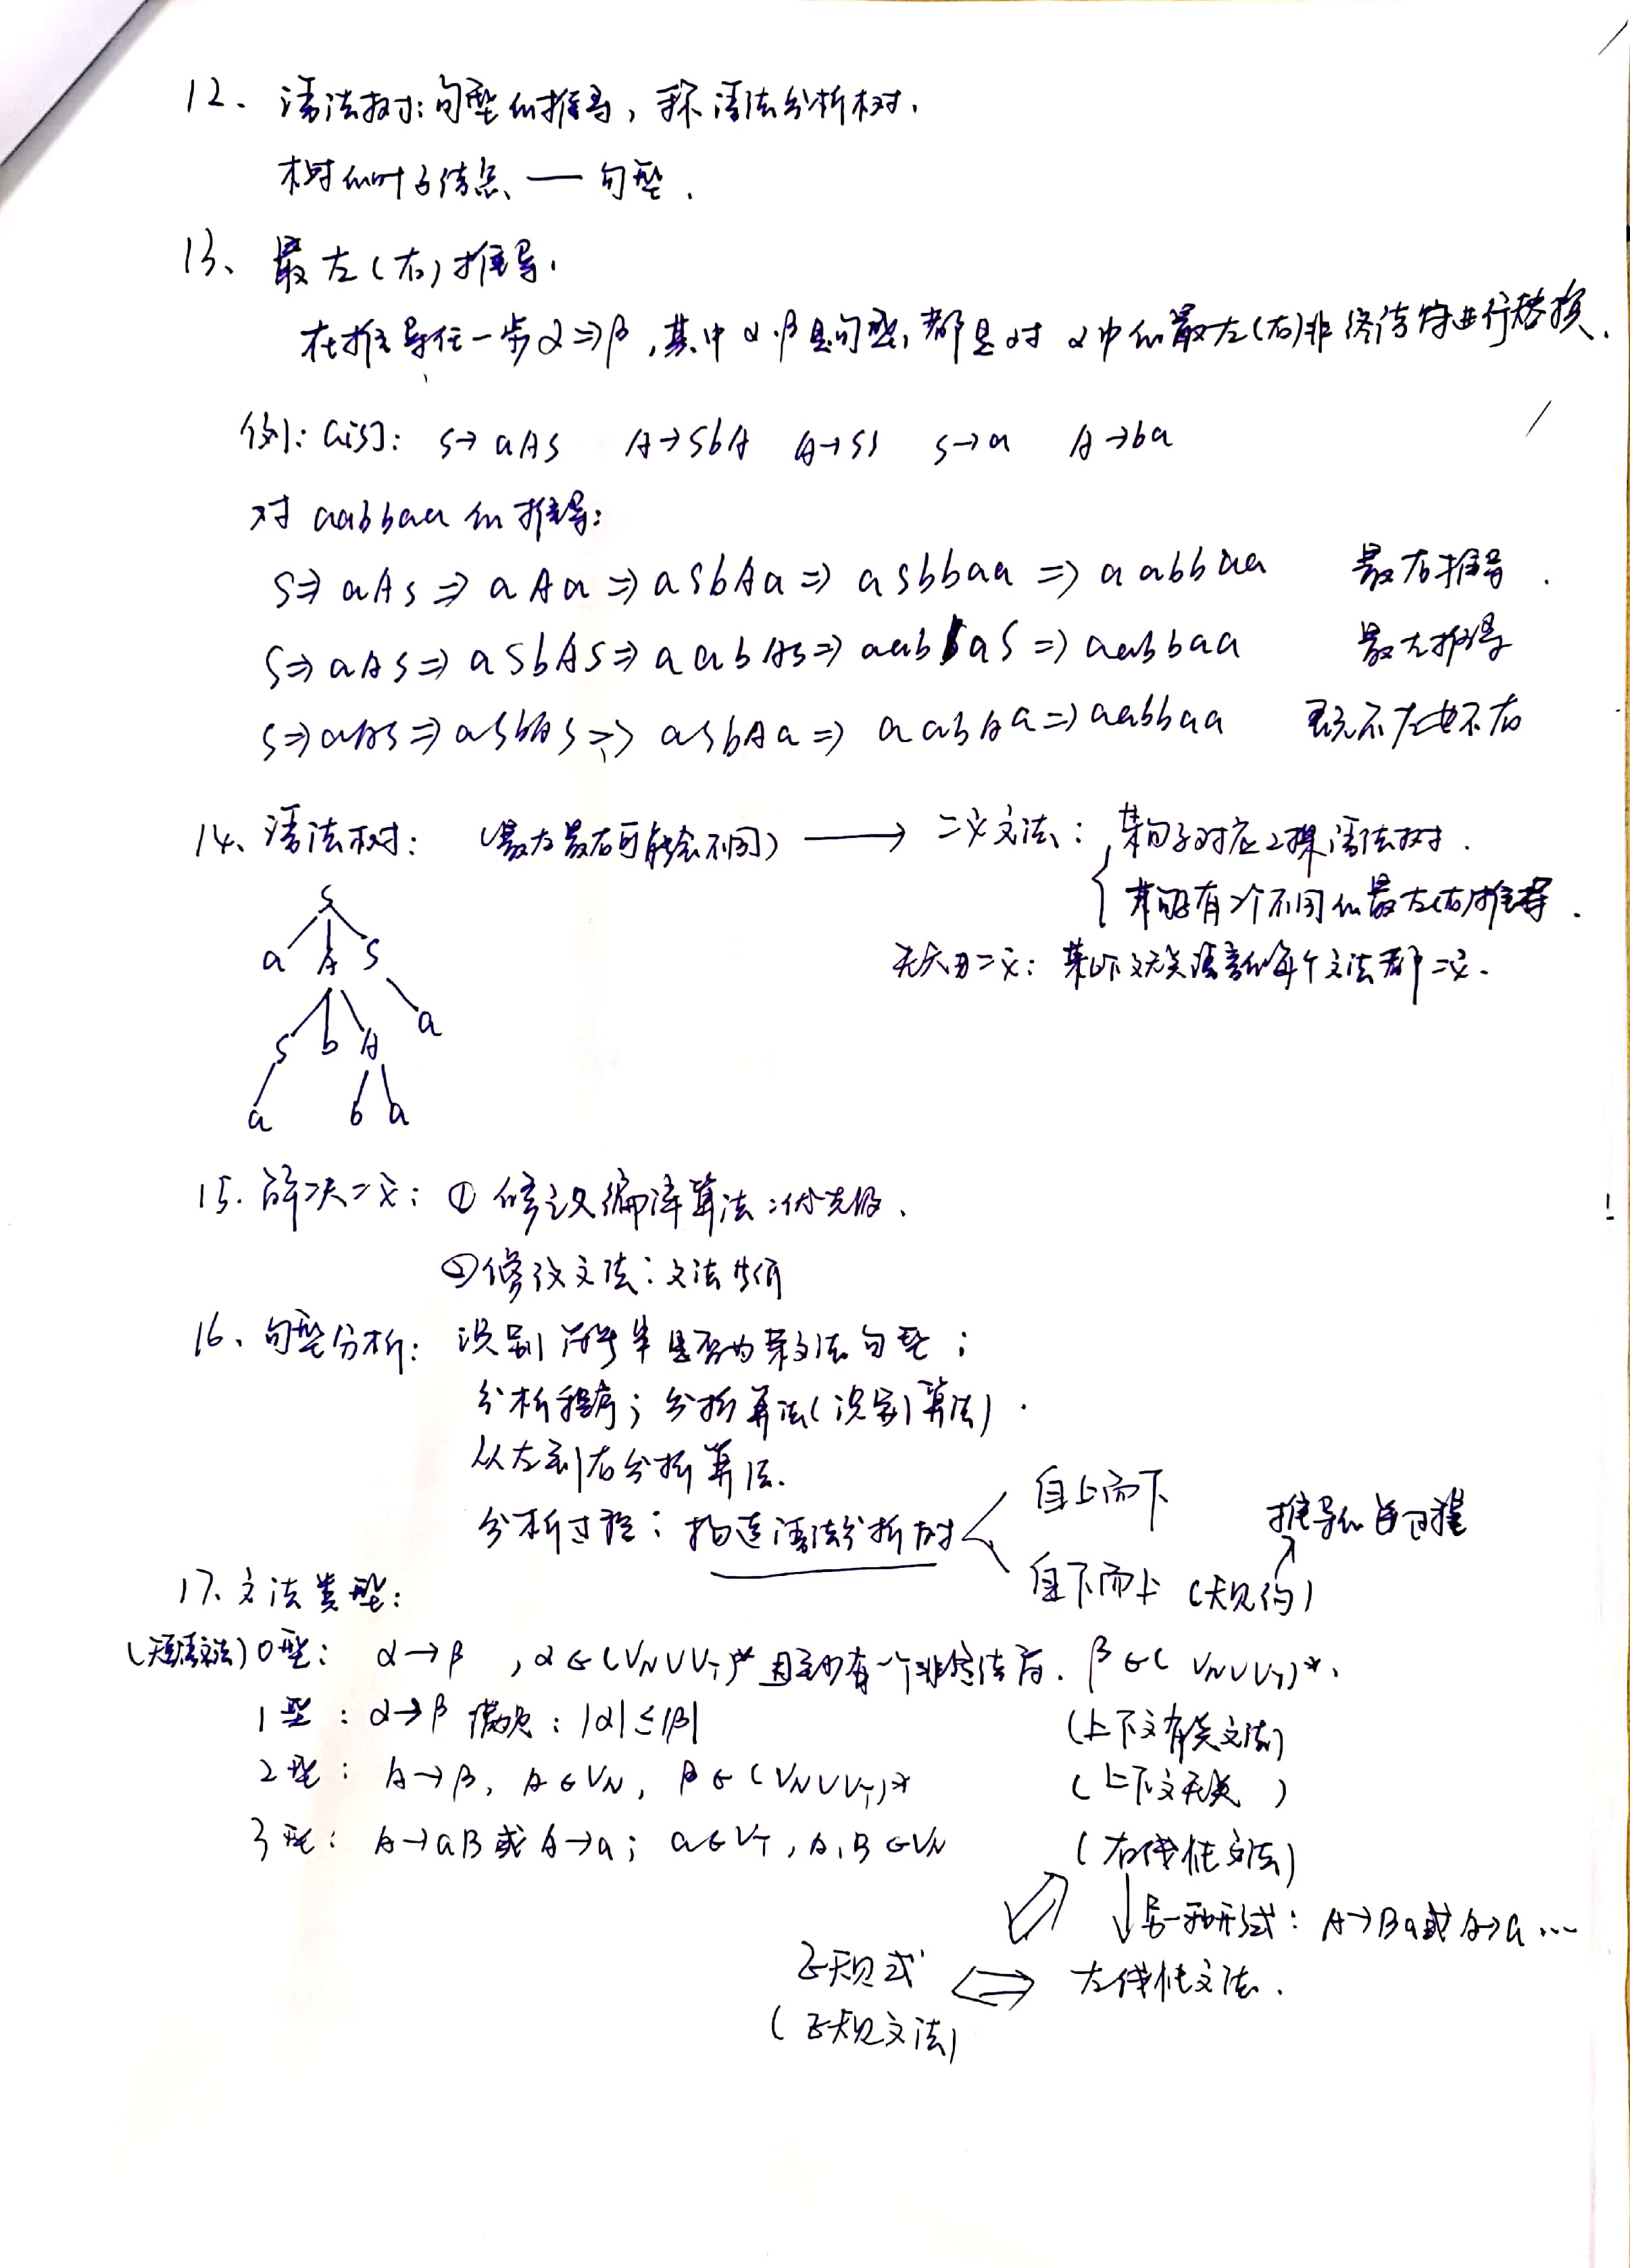 12、语法树:句型的推导,称语法分析树.
树的叶子结点 — 句型.
13、最左(右)推导.
在推导任一步α⇒β,其中α.β是句型,都是对α中的最左(右)非终结符进行替换.
例:G[S]: S→aAS A→SbA A→SS S→a A→ba
对 aabbaa 的推导:
S⇒aAS⇒aAa⇒aSbAa⇒aSbbaa⇒aabbaa 最右推导.
S⇒aAS⇒aSbAS⇒aabAS⇒aabbaS⇒aabbaa 最左推导
S⇒aAS⇒aSbAS⇒aSbAa⇒aabAa⇒aabbaa 既不左也不右
14、语法树: (最左最右可能会不同) → 二义文法: 某句子对应2棵语法树.
某句子有2个不同的最左(右)推导.
先天二义: 某上下文无关语言的每个文法都二义.
S
a A S
S b A a
a b a
15.解决二义:① 修改编译算法:优先级、
②修改文法:文法等价
16、句型分析: 识别符号串是否为某文法句型;
分析程序;分析算法(识别算法).
从左到右分析算法.
分析过程:构造语法分析树 自上而下
推导的逆过程
自下而上 (规约)
17、文法类型:
(短语文法)0型: α→β ,α∈(VN∪VT)* 且至少有一个非终结符. β∈(VN∪VT)*.
1型:α→β 满足:|α|≤|β| (上下文有关文法)
2型: A→β, A∈VN, β∈(VN∪VT)* (上下文无关)
3型: A→aB或A→a; a∈VT,A,B∈VN (右线性文法)
另一种形式: A→Ba或A→a …
正规式 ⇔ 左线性文法.
(正规文法)